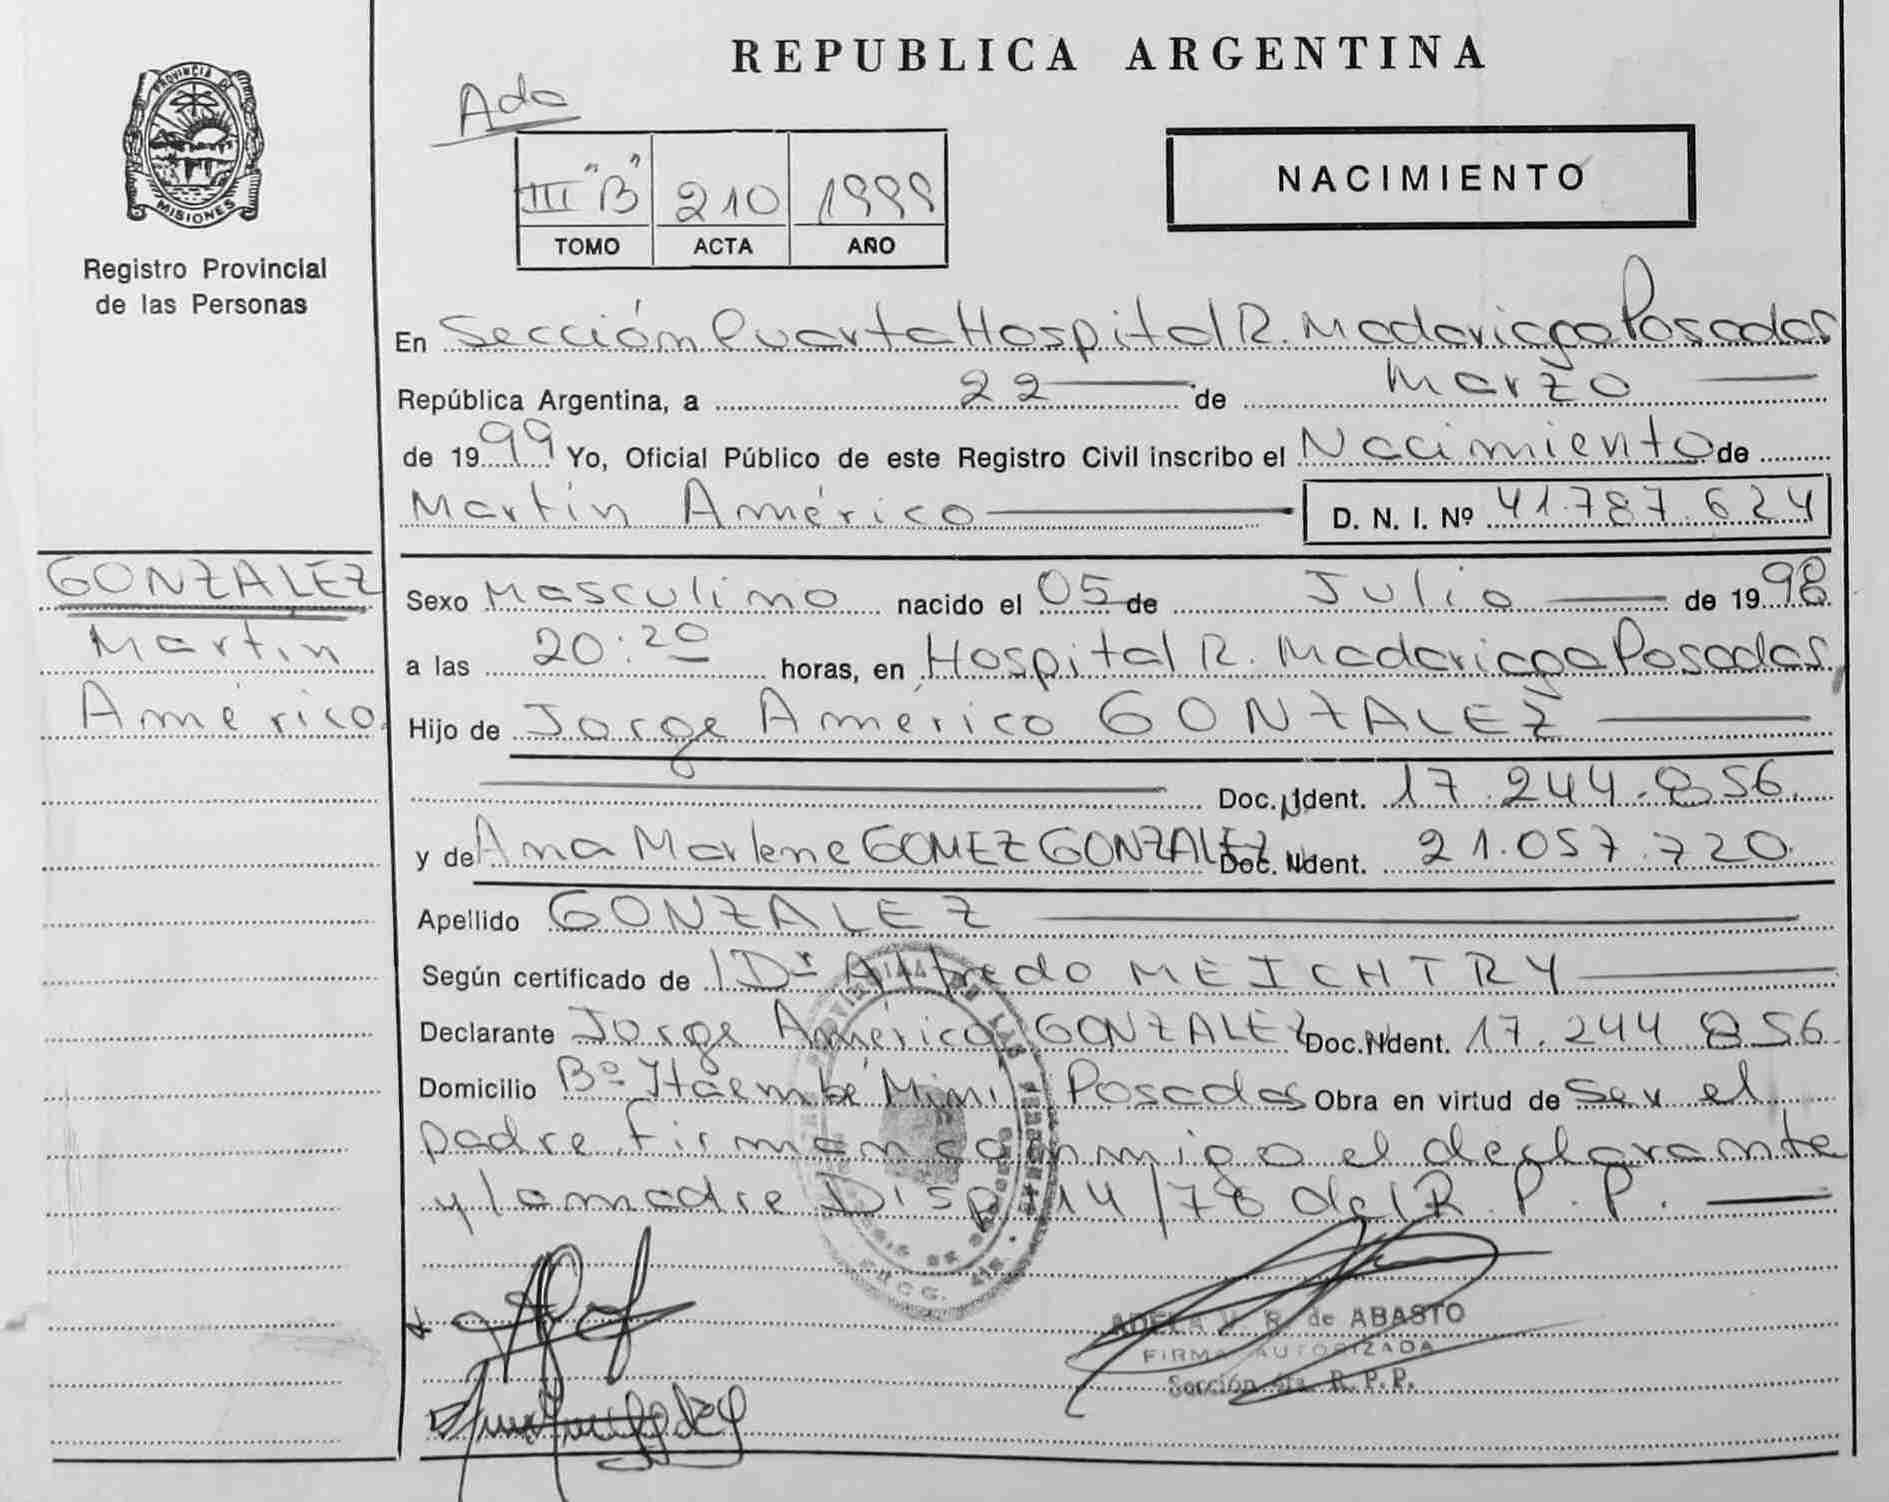 REPUBLICA ARGENTINA
PROVINCIA DE
MISIONES
Registro Provincial
de las Personas
Ada
III "B" 210 1999
TOMO ACTA AÑO
NACIMIENTO
En Sección Cuarta Hospital R. Madariaga Posadas
República Argentina, a 22 de Marzo
de 1999 Yo, Oficial Público de este Registro Civil inscribo el Nacimiento de
Martín Américo D. N. I. Nº 41.787.624
GONZALEZ
Martín
Américo
Sexo Masculino nacido el 05 de Julio de 1998
a las 20:20 horas, en Hospital R. Madariaga Posadas
Hijo de Jorge Américo GONZALEZ
Doc. Ident. 17.244.856.
y de Ana Marlene GOMEZ GONZALEZ Doc. Ident. 21.057.720.
Apellido GONZALEZ
Según certificado de Dr Alfredo MEICHTRY
Declarante Jorge Américo GONZALEZ Doc. Ident. 17.244.856.
Domicilio Bº Itaembé Mini Posadas Obra en virtud de Ser el
padre firman conmigo el declarante
y la madre Disp. 14/78 del R.P.P.
ADELA V. R. de ABASTO
FIRMA AUTORIZADA
Sección 4ta. R.P.P.